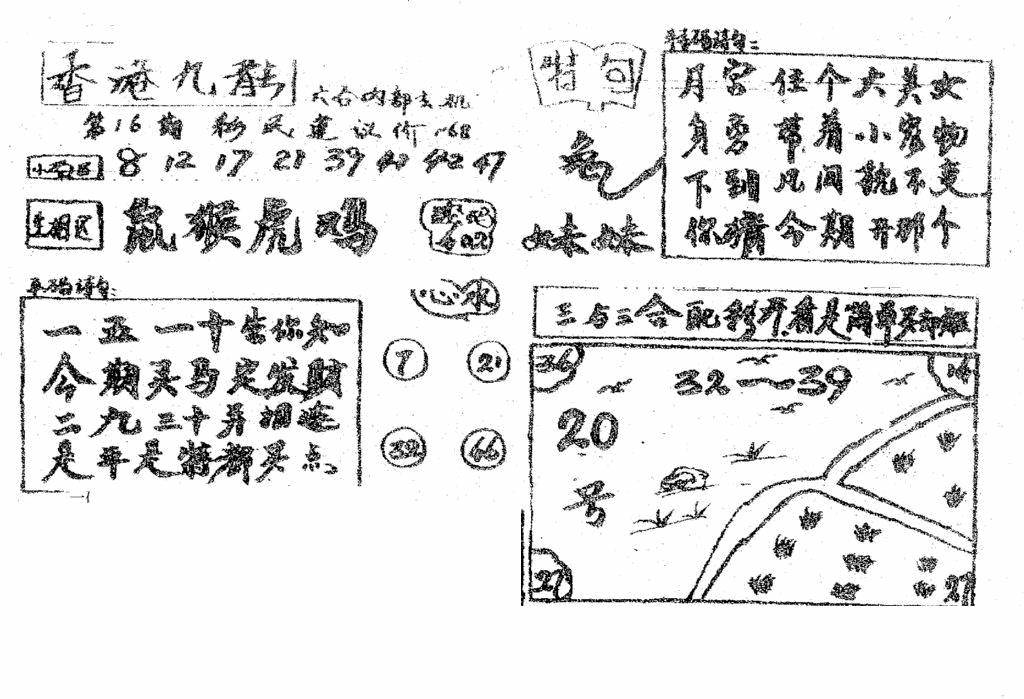 香港九龍
六合内部玄机
第16期 彩民建议价
8 12 17 21 39 42 47
生相区 鼠猴虎鸡
平码诗句:
一五一十告你知
今期买马定发财
二九三十并相连
是平是特都买点
心水
7 21
32
特句
兔
妹妹
月宫住个大美女
身旁带着小宠物
下到凡间就不更
你猜今期开那个
三与三合配彩开看是简单买却难
32—39
20
号
27
27